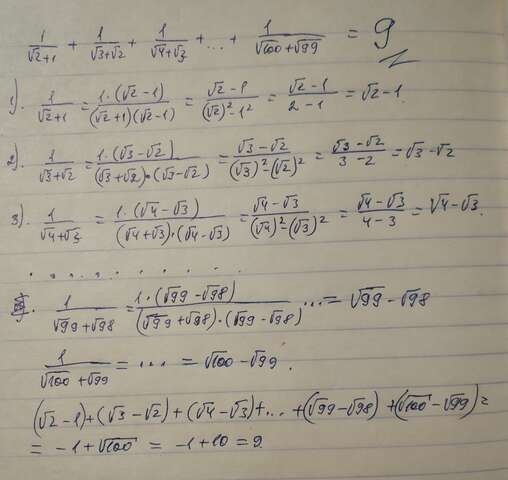 1/(√2+1) + 1/(√3+√2) + 1/(√4+√3) + ... + 1/(√100+√99) = 9
1). 1/(√2+1) = 1·(√2-1)/((√2+1)(√2-1)) = (√2-1)/((√2)²-1²) = (√2-1)/(2-1) = √2-1.
2). 1/(√3+√2) = 1·(√3-√2)/((√3+√2)·(√3-√2)) = (√3-√2)/((√3)²-(√2)²) = (√3-√2)/(3-2) = √3-√2
3). 1/(√4+√3) = 1·(√4-√3)/((√4+√3)·(√4-√3)) = (√4-√3)/((√4)²-(√3)²) = (√4-√3)/(4-3) = √4-√3.
. . . . . . . . . . .
1/(√99+√98) = 1·(√99-√98)/((√99+√98)·(√99-√98)) ... = √99-√98
1/(√100+√99) = .... = √100-√99.
(√2-1)+(√3-√2)+(√4-√3)+...+(√99-√98)+(√100-√99)=
= -1+√100 = -1+10 = 9.